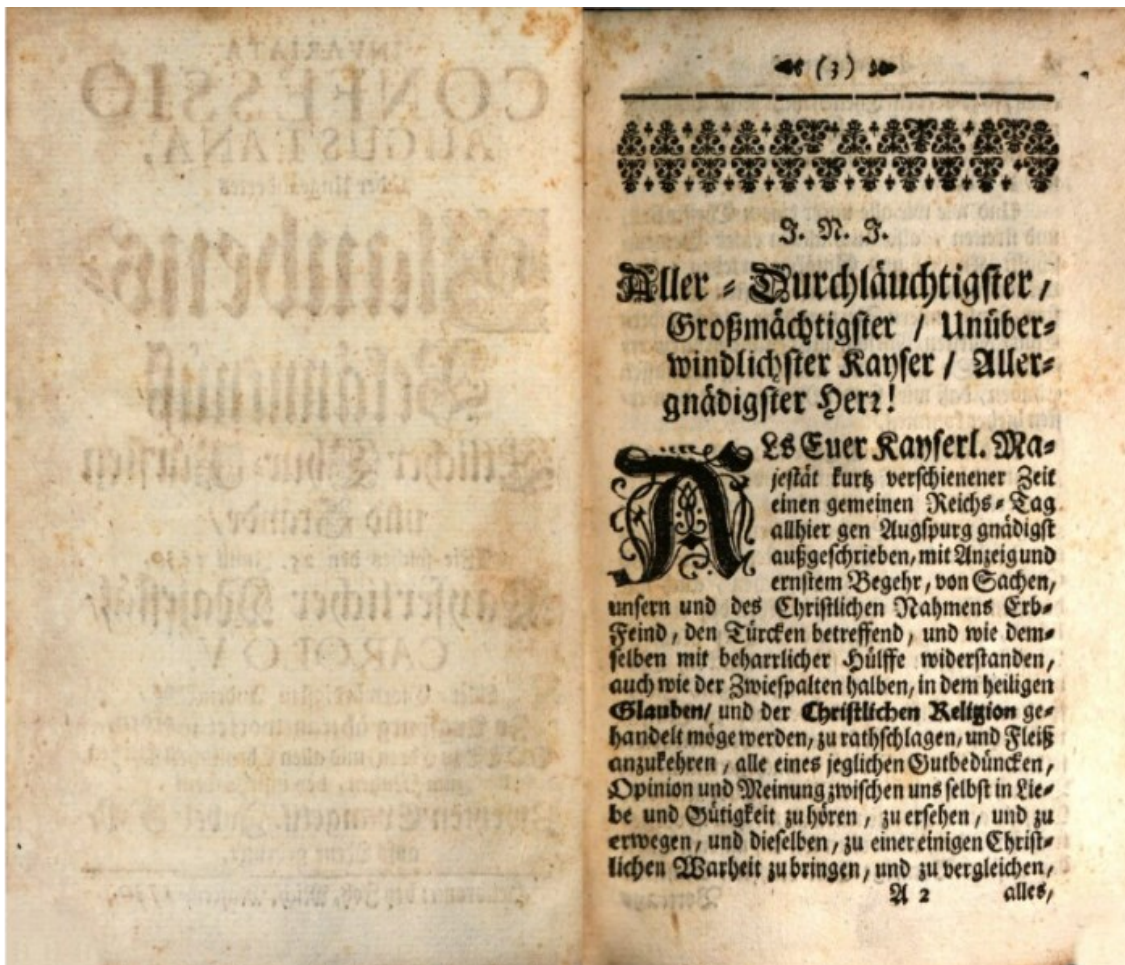 INVARIATA
CONFESSIO
AUGUSTANA,
Glaubens-
Bekäntnuß
und Stände/
Kayserlicher Majestät/
CAROLO V
(3)
J. N. J.
Aller-Durchläuchtigster /
Großmächtigster / Unüber-
windlichster Kayser / Aller-
gnädigster Herr!
ALs Euer Kayserl. Ma-
jestät kurtz verschienener Zeit
einen gemeinen Reichs-Tag
allhier gen Augspurg gnädigst
außgeschrieben, mit Anzeig und
ernstem Begehr, von Sachen,
unsern und des Christlichen Nahmens Erb-
Feind, den Türcken betreffend, und wie dem-
selben mit beharrlicher Hülffe widerstanden,
auch wie der Zwiespalten halben, in dem heiligen
Glauben/ und der Christlichen Religion ge-
handelt möge werden, zu rathschlagen, und Fleiß
anzukehren, alle eines jeglichen Gutbedüncken,
Opinion und Meinung zwischen uns selbst in Lie-
be und Gütigkeit zu hören, zu ersehen, und zu
erwegen, und dieselben, zu einer einigen Christ-
lichen Warheit zu bringen, und zu vergleichen,
A 2 alles,